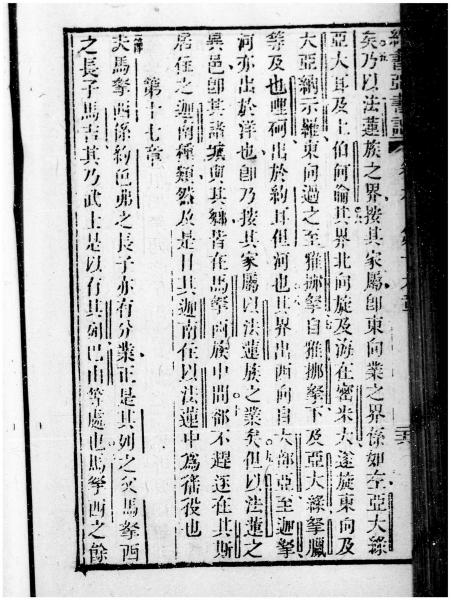 矣乃以法蓮族之界按其家屬即東向業之界係如左亞大綠
亞大耳及上伯何倫其界北向旋及海在密米大遂旋東向及
大亞納示羅東向過之至雅挪拏自雅挪拏下及亞大綠拏臘
等及也哩可出於約耳但河也其界出西向自大部亞至迦拏
河亦出於洋也即乃按其家屬以法蓮族之業矣但以法蓮之
異邑即其諸城與其鄉皆在馬拏西族中間卻不趕逐在其斯
居住之迦南種類然及是日其迦南在以法蓮中為服役也
第十七章
夫馬拏西係約色弗之長子亦有分業正是其列之父馬拏西
之長子馬吉其乃武士是以有其列巴山等處也馬拏西之餘